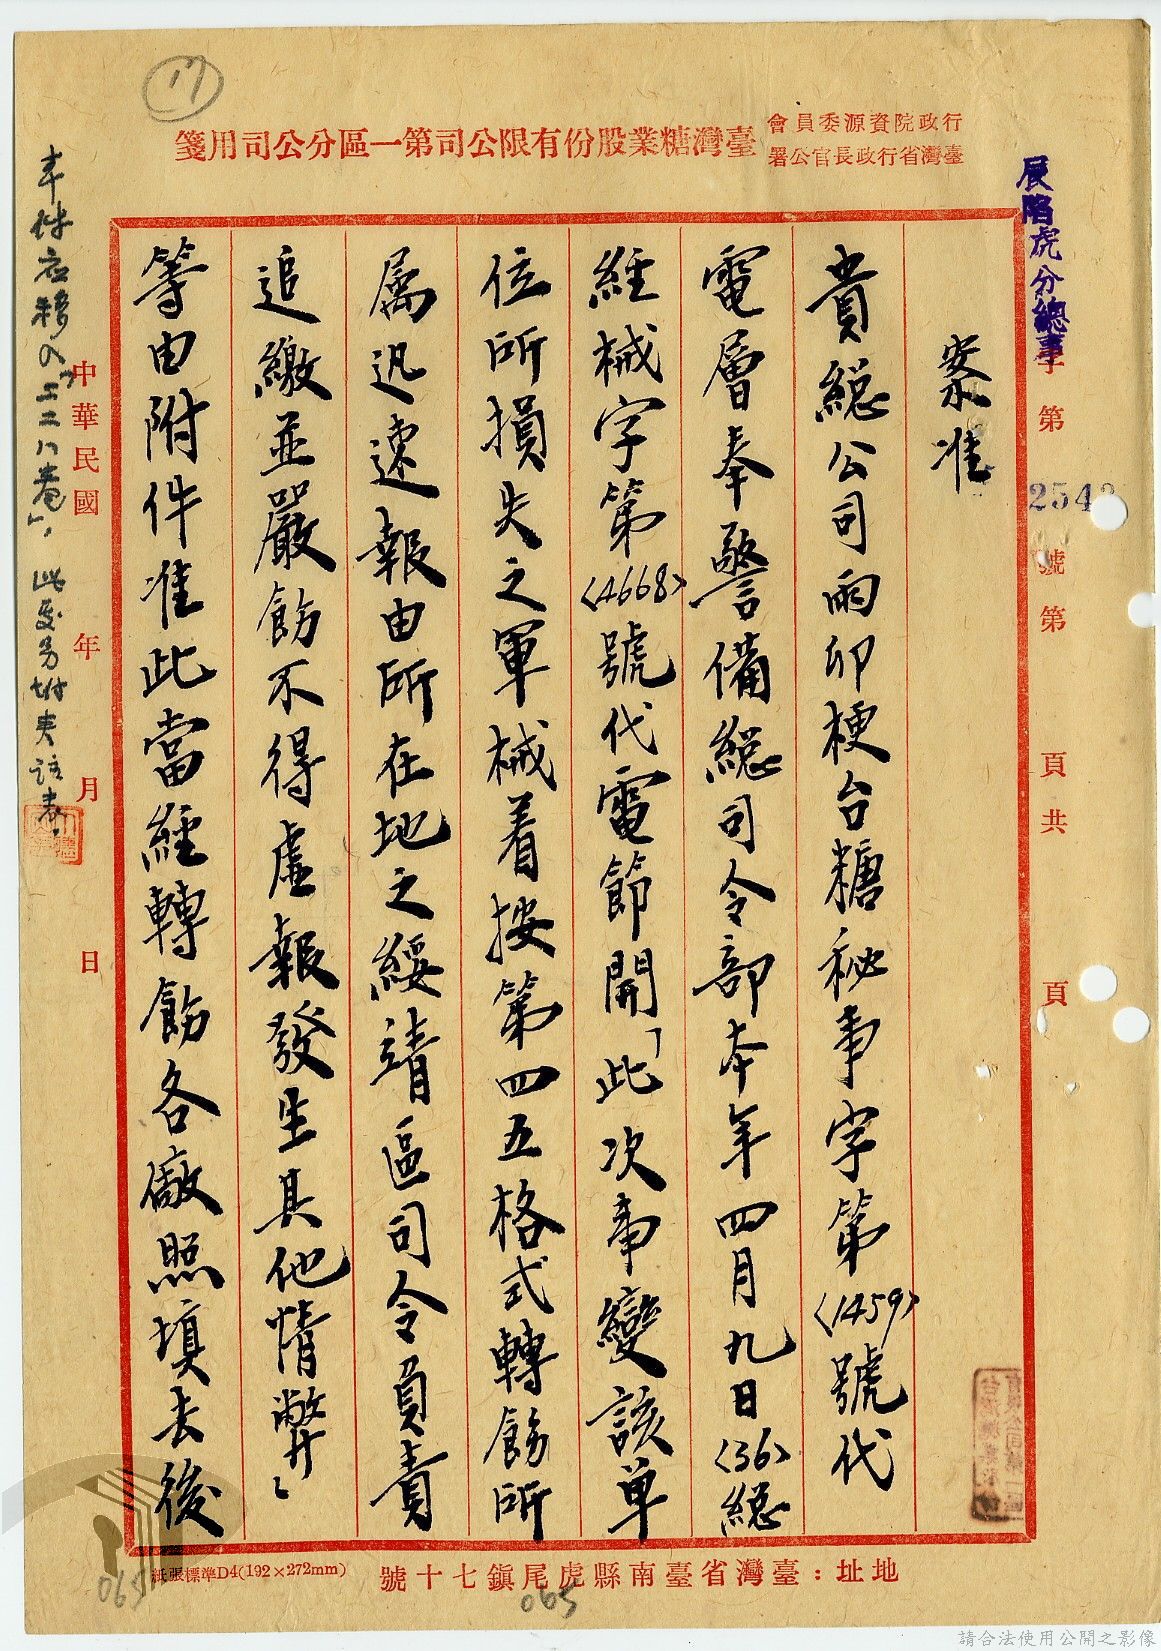 17
行政院資源委員會
臺灣省行政長官公署
臺灣糖業股份有限公司第一區分公司用箋
虎分總事字第2542號第 頁共 頁
案准
貴總公司雨卯梗台糖秘事字第<1459>號代
電層奉警備總司令部本年四月九日<36>總
經械字第<4668>號代電節開「此次事變該單
位所損失之軍械着按第四五格式轉飭所
屬迅速報由所在地之綏靖區司令負責
追繳並嚴飭不得虛報發生其他情弊」
等由附件准此當經轉飭各廠照填去後
中華民國 年 月 日
本件應移入「二二八卷」，此處另附夾註表。
地址：臺灣省臺南縣虎尾鎮七十號
紙張標準D4(192×272mm)
065
065
請合法使用公開之影像